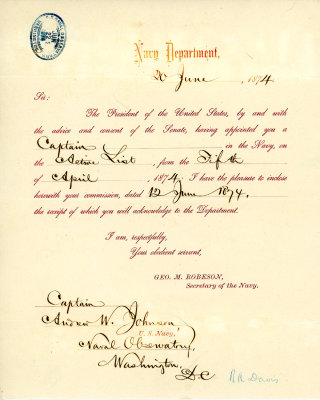 Navy Department,
20 June, 1874
Sir:
The President of the United States, by and with
the advice and consent of the Senate, having appointed you a
Captain in the Navy, on
the Active List, from the Fifth
of April, 1874. I have the pleasure to inclose
herewith your commission, dated 12 June 1874,
the receipt of which you will acknowledge to the Department.
I am, respectfully,
Your obedient servant,
GEO. M. ROBESON,
Secretary of the Navy.
Captain
Andrew W. Johnson,
U. S. Navy,
Naval Observatory,
Washington,
D.C
Davis